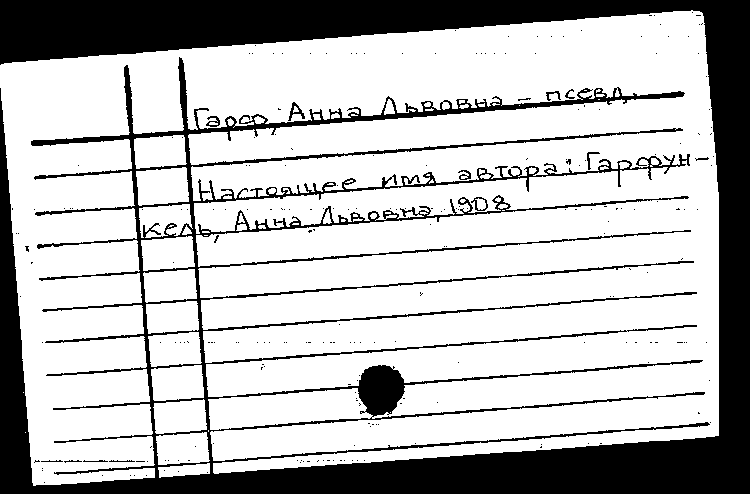 Гарф, Анна Львовна - псевд.
Настоящее имя автора: Гарфун-
кель, Анна Львовна, 1908